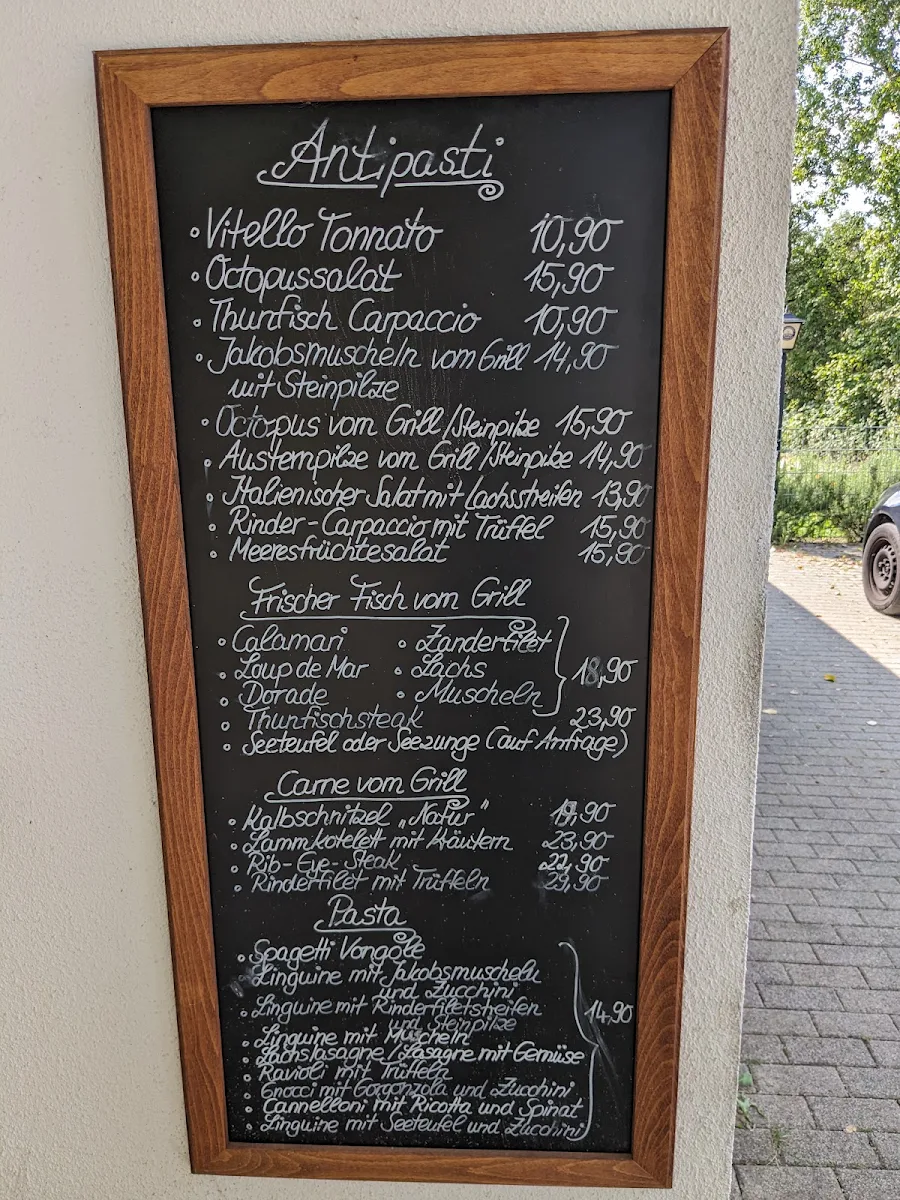 Antipasti
• Vitello Tonnato 10,90
• Octopussalat 15,90
• Thunfisch Carpaccio 10,90
• Jakobsmuscheln vom Grill 14,90
mit Steinpilze
• Octopus vom Grill/Steinpilze 15,90
• Austernpilze vom Grill/Steinpilze 14,90
• Italienischer Salat mit Lachsstreifen 13,90
• Rinder-Carpaccio mit Trüffel 15,90
• Meeresfrüchtesalat 15,90
Frischer Fisch vom Grill
• Calamari • Zanderfilet
• Loup de Mar • Lachs 18,90
• Dorade • Muscheln
• Thunfischsteak 23,90
• Seeteufel oder Seezunge (auf Anfrage)
Carne vom Grill
• Kalbschnitzel „Natur" 19,90
• Lammkotelett mit Kräutern 23,90
• Rib-Eye-Steak 22,90
• Rinderfilet mit Trüffeln 29,90
Pasta
• Spagetti Vongole
• Linguine mit Jakobsmuscheln
und Zucchini
• Linguine mit Rinderfiletstreifen 14,90
und Steinpilze
• Linguine mit Muscheln
• Lachslasagne/Lasagne mit Gemüse
• Ravioli mit Trüffeln
• Gnocci mit Gorgonzola und Zucchini
• Cannelloni mit Ricotta und Spinat
• Linguine mit Seeteufel und Zucchini